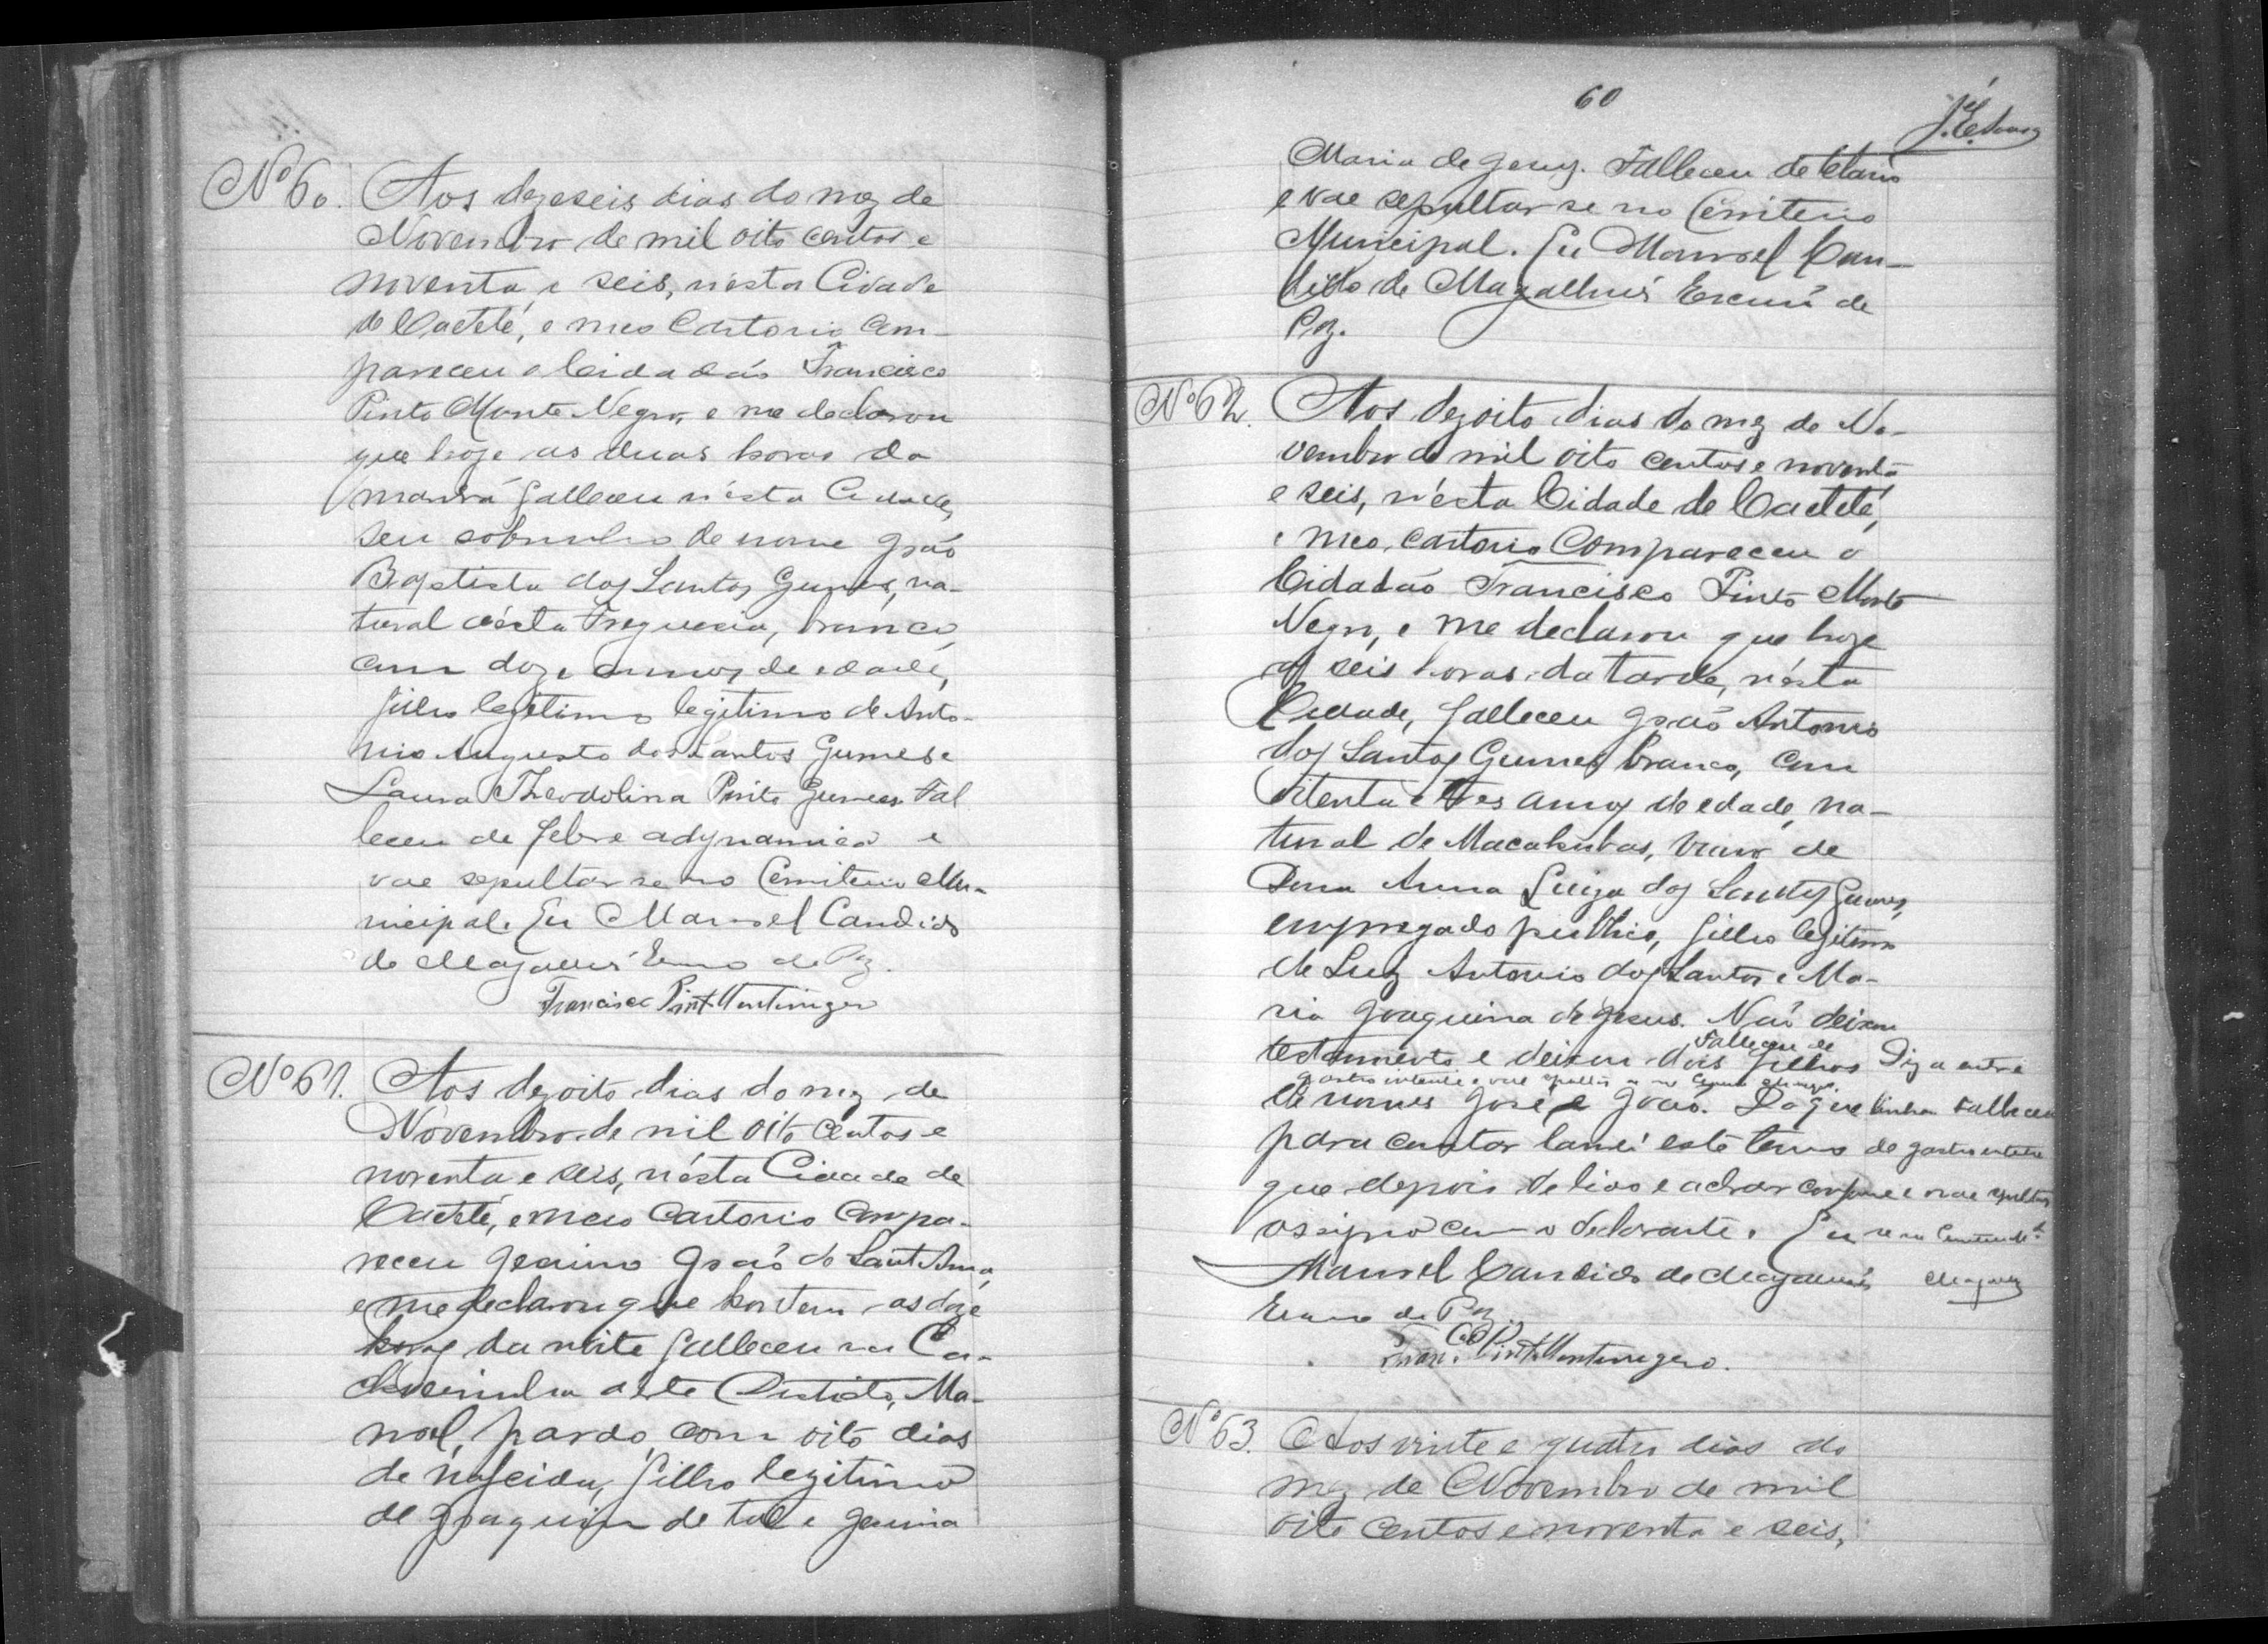 Nº 60. Aos dezeseis dias do mez de
Novembro de mil oito centos e
noventa e seis, nésta Cidade
de Caeteté, e meo Cartorio com-
pareceu o Cidadão Francisco
Pinto Monte Negro, e me declarou
que hoje as duas horas da
manhã falleceu nésta Cidade,
seu sobrinho de nome João
Baptista dos Santos Gumes, na-
tural désta Freguesia, branco,
com doze annos de edade,
filho legitimo legitimo de Anto-
nio Augusto dos Santos Gumes e
Laura Theodolina Pinto Gumes. Fal
leceu de febre adynamica e
vae sepultar se no Cemiterio Mu-
nicipal. Eu Manoel Candido
de Magalhães Escrivão de Paz.
Francisco Pinto Montenegro
Nº 61. Aos dezoito dias do mez de
Novembro de mil oito centos e
noventa e seis, nésta Cidade de
Caeteté, e meo Cartorio compa-
receu João de Sant Anna,
e me declarou que hontem as doze
horas da noite falleceu na Ca-
choeirinha déste Districto, Ma-
noel, pardo, com oito dias
de nascido, filho legitimo
de Joaquim de tal e
60
Maria de Jesus. Falleceu de tetano
e vae sepultar se no Cemiterio
Municipal. Eu Manoel Can-
dido de Magalhães Escrivão de
Paz.
Nº 62. Aos dezoito dias do mez de No-
vembro de mil oito centos e noventa
e seis, nésta Cidade de Caeteté,
e meo cartorio compareceu o
Cidadão Francisco Pinto Monte
Negro, e me declarou que hoje
as seis horas da tarde, nésta
Cidade, falleceu João Antonio
dos Santos Gumes, branco, com
oitenta e tres annos de edade, na-
tural de Macahubas, viuvo de
Dona Anna Luiza dos Santos Gumes,
empregado publico, filho legitimo
de Luiz Antonio dos Santos e Ma-
ria Joaquina de Jesus. Não deixou
testamento e deixou dois filhos Digo entre
Falleceu de
gastro enterite e vae sepultar se no Cemiterio
de nomes José e João. Do que linha Falleceu
para constar lavrei este termo de gastro enterite
que depois de lido e achar conforme e vae sepultar
assigno com o declarante. Eu se no Cemiterio Mal
Manoel Candido de Magalhães Magalhães
Escrivão de Paz
Fran.co Pinto Montenegro.
Nº 63. Aos vinte e quatro dias do
mez de Novembro de mil
oito centos e noventa e seis,